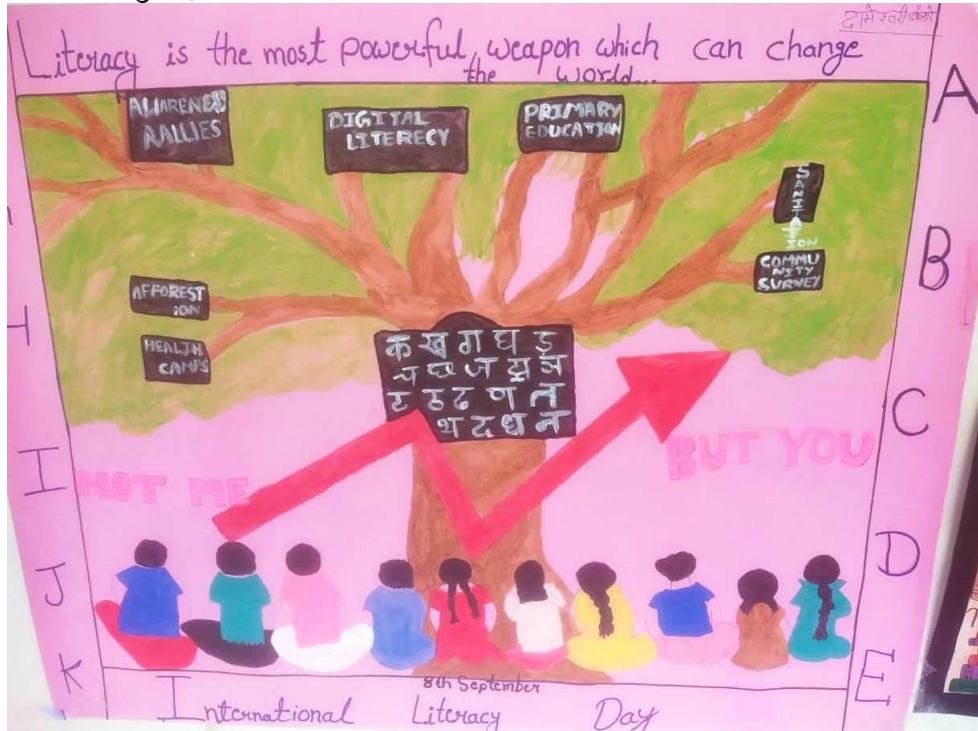 Literacy is the most powerful weapon which can change
the world...
AWARENES
RALLIES
DIGITAL
LITERECY
PRIMARY
EDUCATION
SANITATION
COMMU
NITY
SURVEY
AFFOREST
ION
HEALTH
CAMPS
क ख ग घ ङ
च छ ज झ ञ
ट ठ ढ ण त
थ द ध न
NOT ME
BUT YOU
8th September
International Literacy Day
A
B
C
D
E
I
J
K